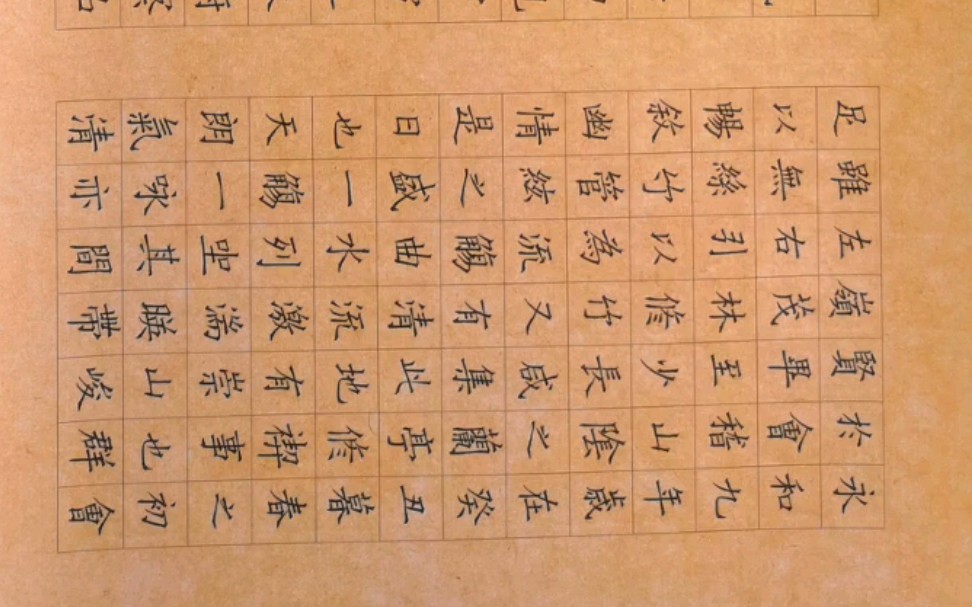 永和九年歲在癸丑暮春之初會
於會稽山陰之蘭亭修禊事也群
賢畢至少長咸集此地有崇山峻
嶺茂林修竹又有清流激湍暎帶
左右引以為流觴曲水列坐其間
雖無絲竹管絃之盛一觴一咏亦
足以暢敘幽情是日也天朗氣清